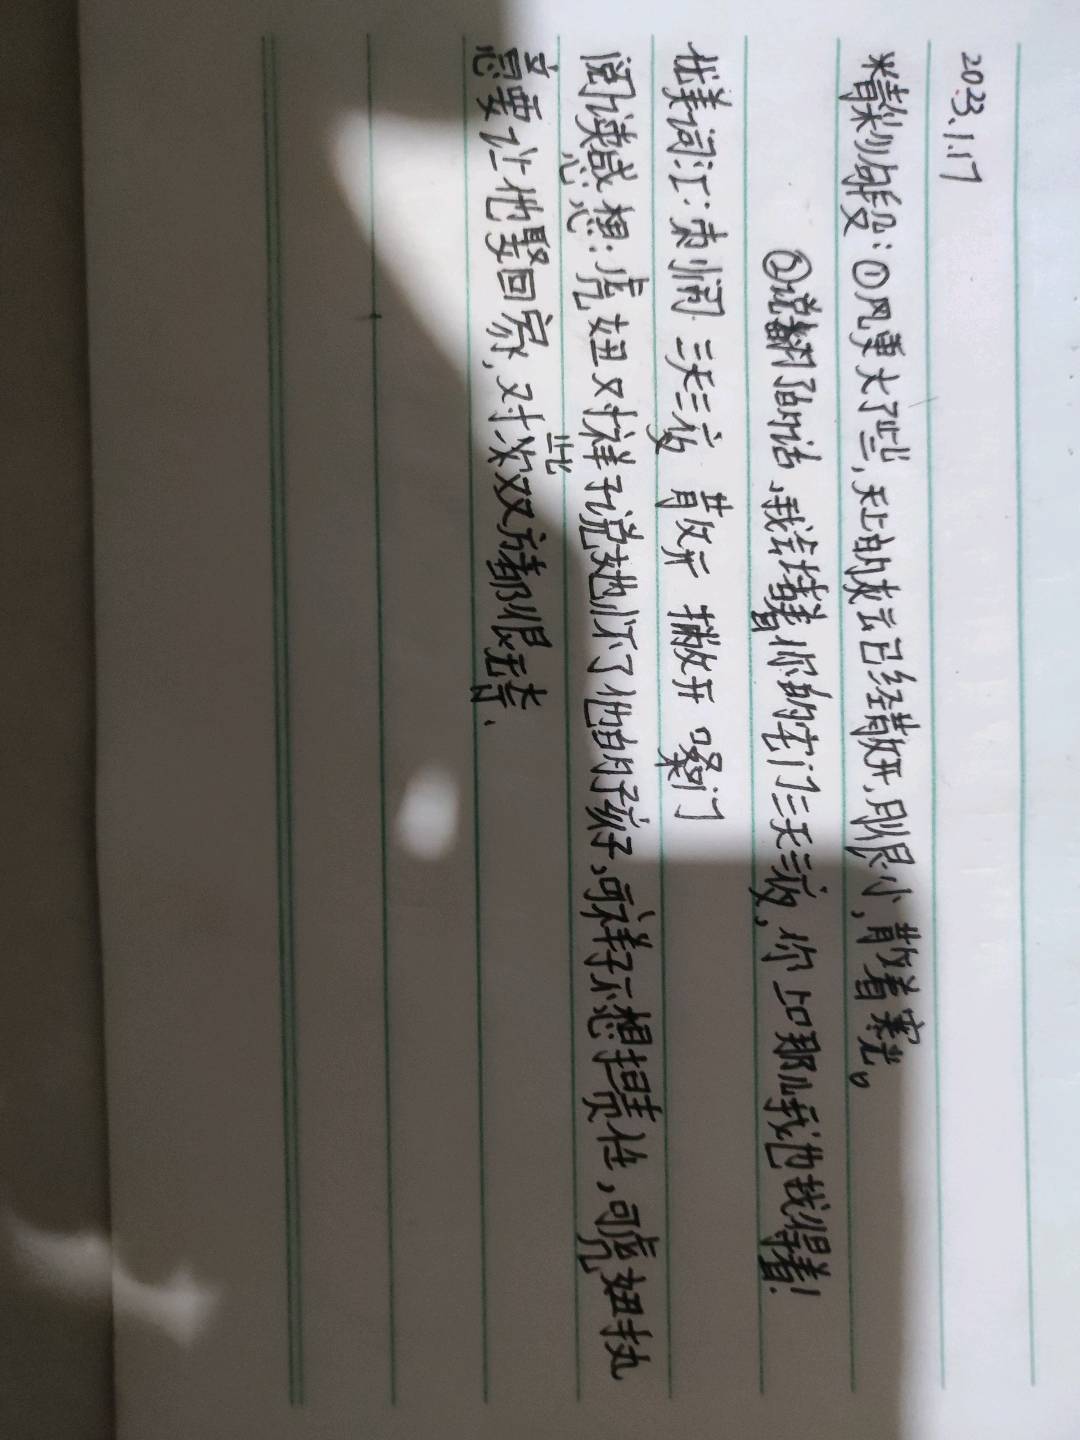 2023.1.17
精彩句段:①风更大了些,天上的灰云已经散开,月很小,散着寒光。
②说翻了的话,我会堵着你的宅门三天三夜,你上哪儿我也找得着!
优美词汇: 三天三夜 散开 撇开 嗓门
阅读感想:虎妞对祥子说她怀了他的孩子,可祥子不想担责任,可虎妞执
意要让他娶回家,对次双方都很无奈.
些